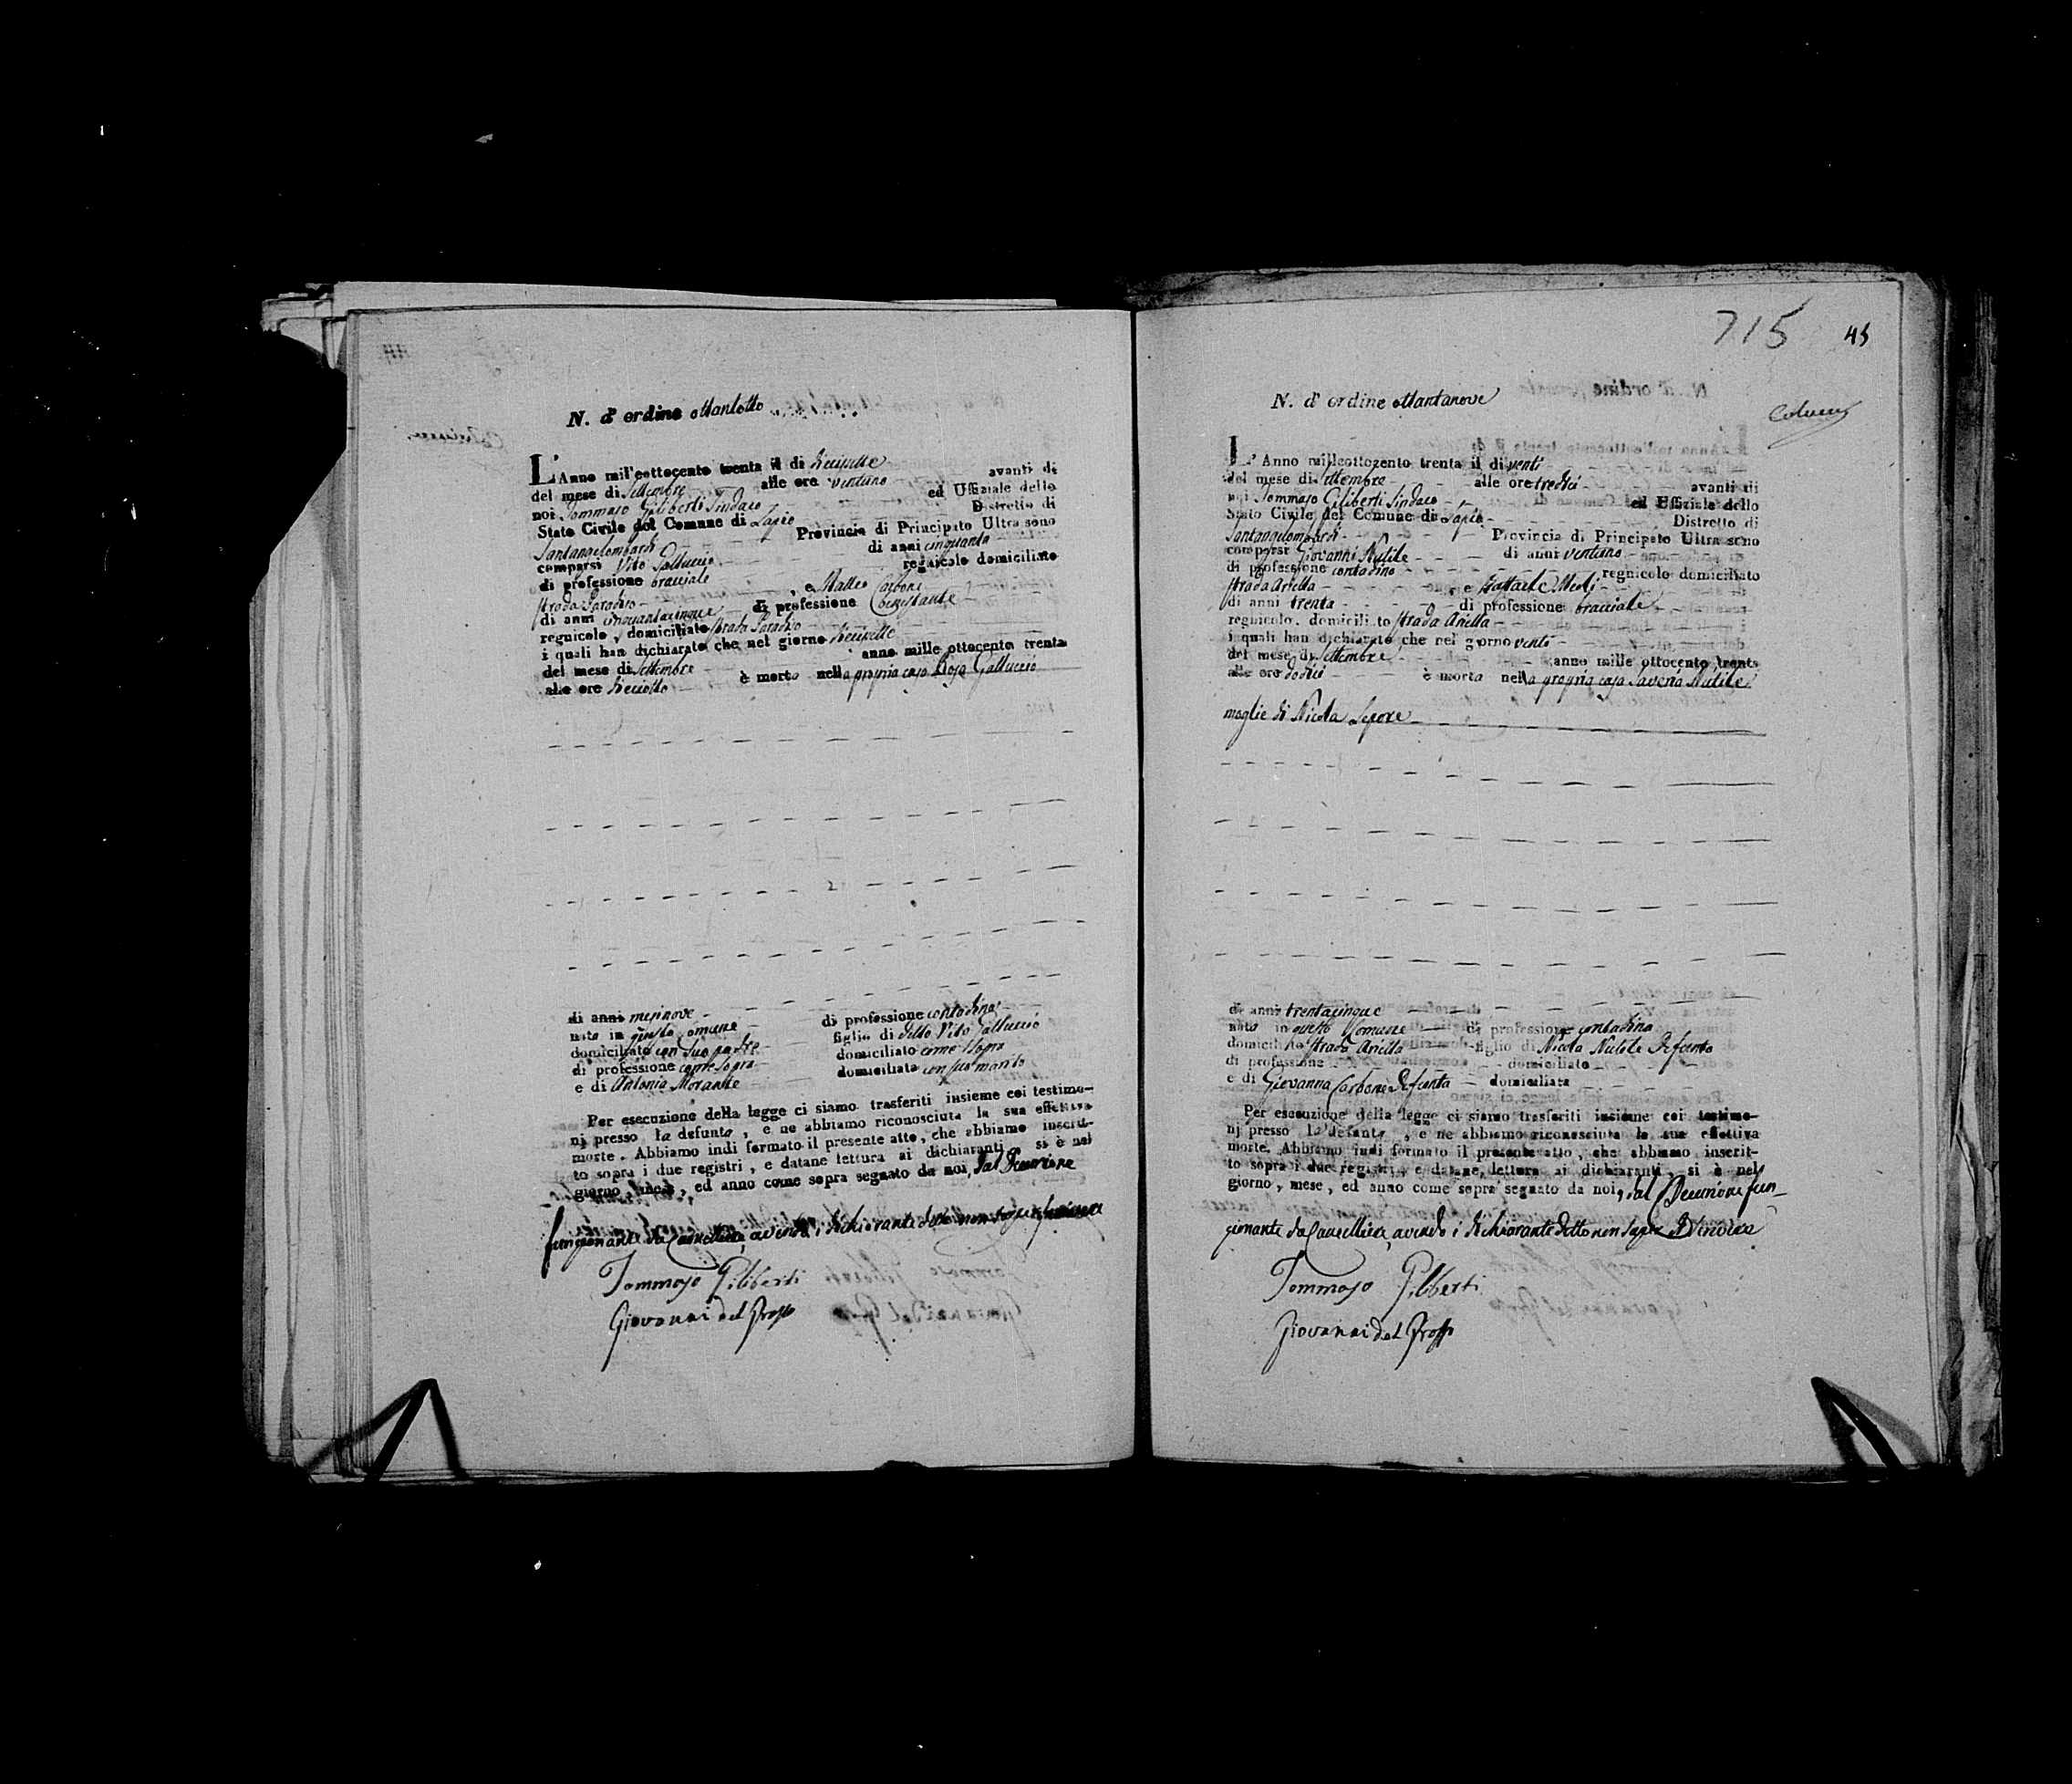 N. d' ordine ottantotto
L'Anno mill'eottocento trenta il di diecisette
del mese di Settembre alle ore ventuno avanti di
noi Tommaso Giliberti Sindaco ed Uffiziale dello
Stato Civile del Comune di Lapio Distretto di
Santangelombardi Provincia di Principato Ultra sono
comparsi Vito Galluccio di anni cinquanta
di professione bracciale regnicolo domiciliato
strada Paradiso , e Matteo Carbone
di anni cinquantacinque di professione benestante
regnicolo , domiciliato strada Paradiso
i quali han dichiarato che nel giorno diecisette
del mese di Settembre anno mille ottocento trenta
alle ore dieciotto è morta nella propria casa Rosa Galluccio
di anni di professione contadina
nata in questo Comune figlia di detto Vito Galluccio
domiciliata con suo padre domiciliato come sopra
di professione come sopra
e di Antonia Morante domiciliata con suo marito
Per esecuzione della legge ci siamo trasferiti insieme coi testimo-
nj presso la defunta , e ne abbiamo riconosciuta la sua effettiva
morte . Abbiamo indi formato il presente atto , che abbiamo inscrit-
to sopra i due registri , e datane lettura ai dichiaranti si è nel
giorno , mese , ed anno come sopra segnato da noi, dal Decurione
funzionante da Cancelliere, avendo i dichiaranti detto non saper scrivere
Tommaso Giliberti
Giovanni del Grosso
715 45
N. d' ordine ottantanove
L' Anno milleottocento trenta il di venti
del mese di Settembre alle ore tredici avanti di
noi Tommaso Giliberti Sindaco ed Uffiziale dello
Stato Civile del Comune di Lapio Distretto di
Santangelombardi Provincia di Principato Ultra sono
comparsi Giovanni Nutile di anni ventuno
di professione contadino regnicolo domiciliato
strada Ariella , e Raffaele Meoli
di anni trenta di professione bracciale
regnicolo, domiciliato strada Ariella
i quali han dichiarato che nel giorno venti
del mese di Settembre anno mille ottocento trenta
alle ore dodici è morta nella propria casa Saveria Nutile
moglie di Nicola Lepore
di anni trentacinque
nata in questo Comune di professione contadina
domiciliata strada Ariella figlia di Nicola Nutile defunto
di professione domiciliato
e di Giovanna Carbone defunta domiciliata
Per esecuzione della legge ci siamo trasferiti insieme coi testimo-
nj presso la defunta , e ne abbiamo riconosciuta la sua effettiva
morte. Abbiamo indi formato il presente atto , che abbiamo inscrit-
to sopra i due registri , e datane lettura ai dichiaranti, si è nel
giorno , mese , ed anno come sopra segnato da noi, dal Decurione fun-
zionante da Cancelliere, avendo i dichiaranti detto non saper scrivere
Tommaso Giliberti
Giovanni del Grosso